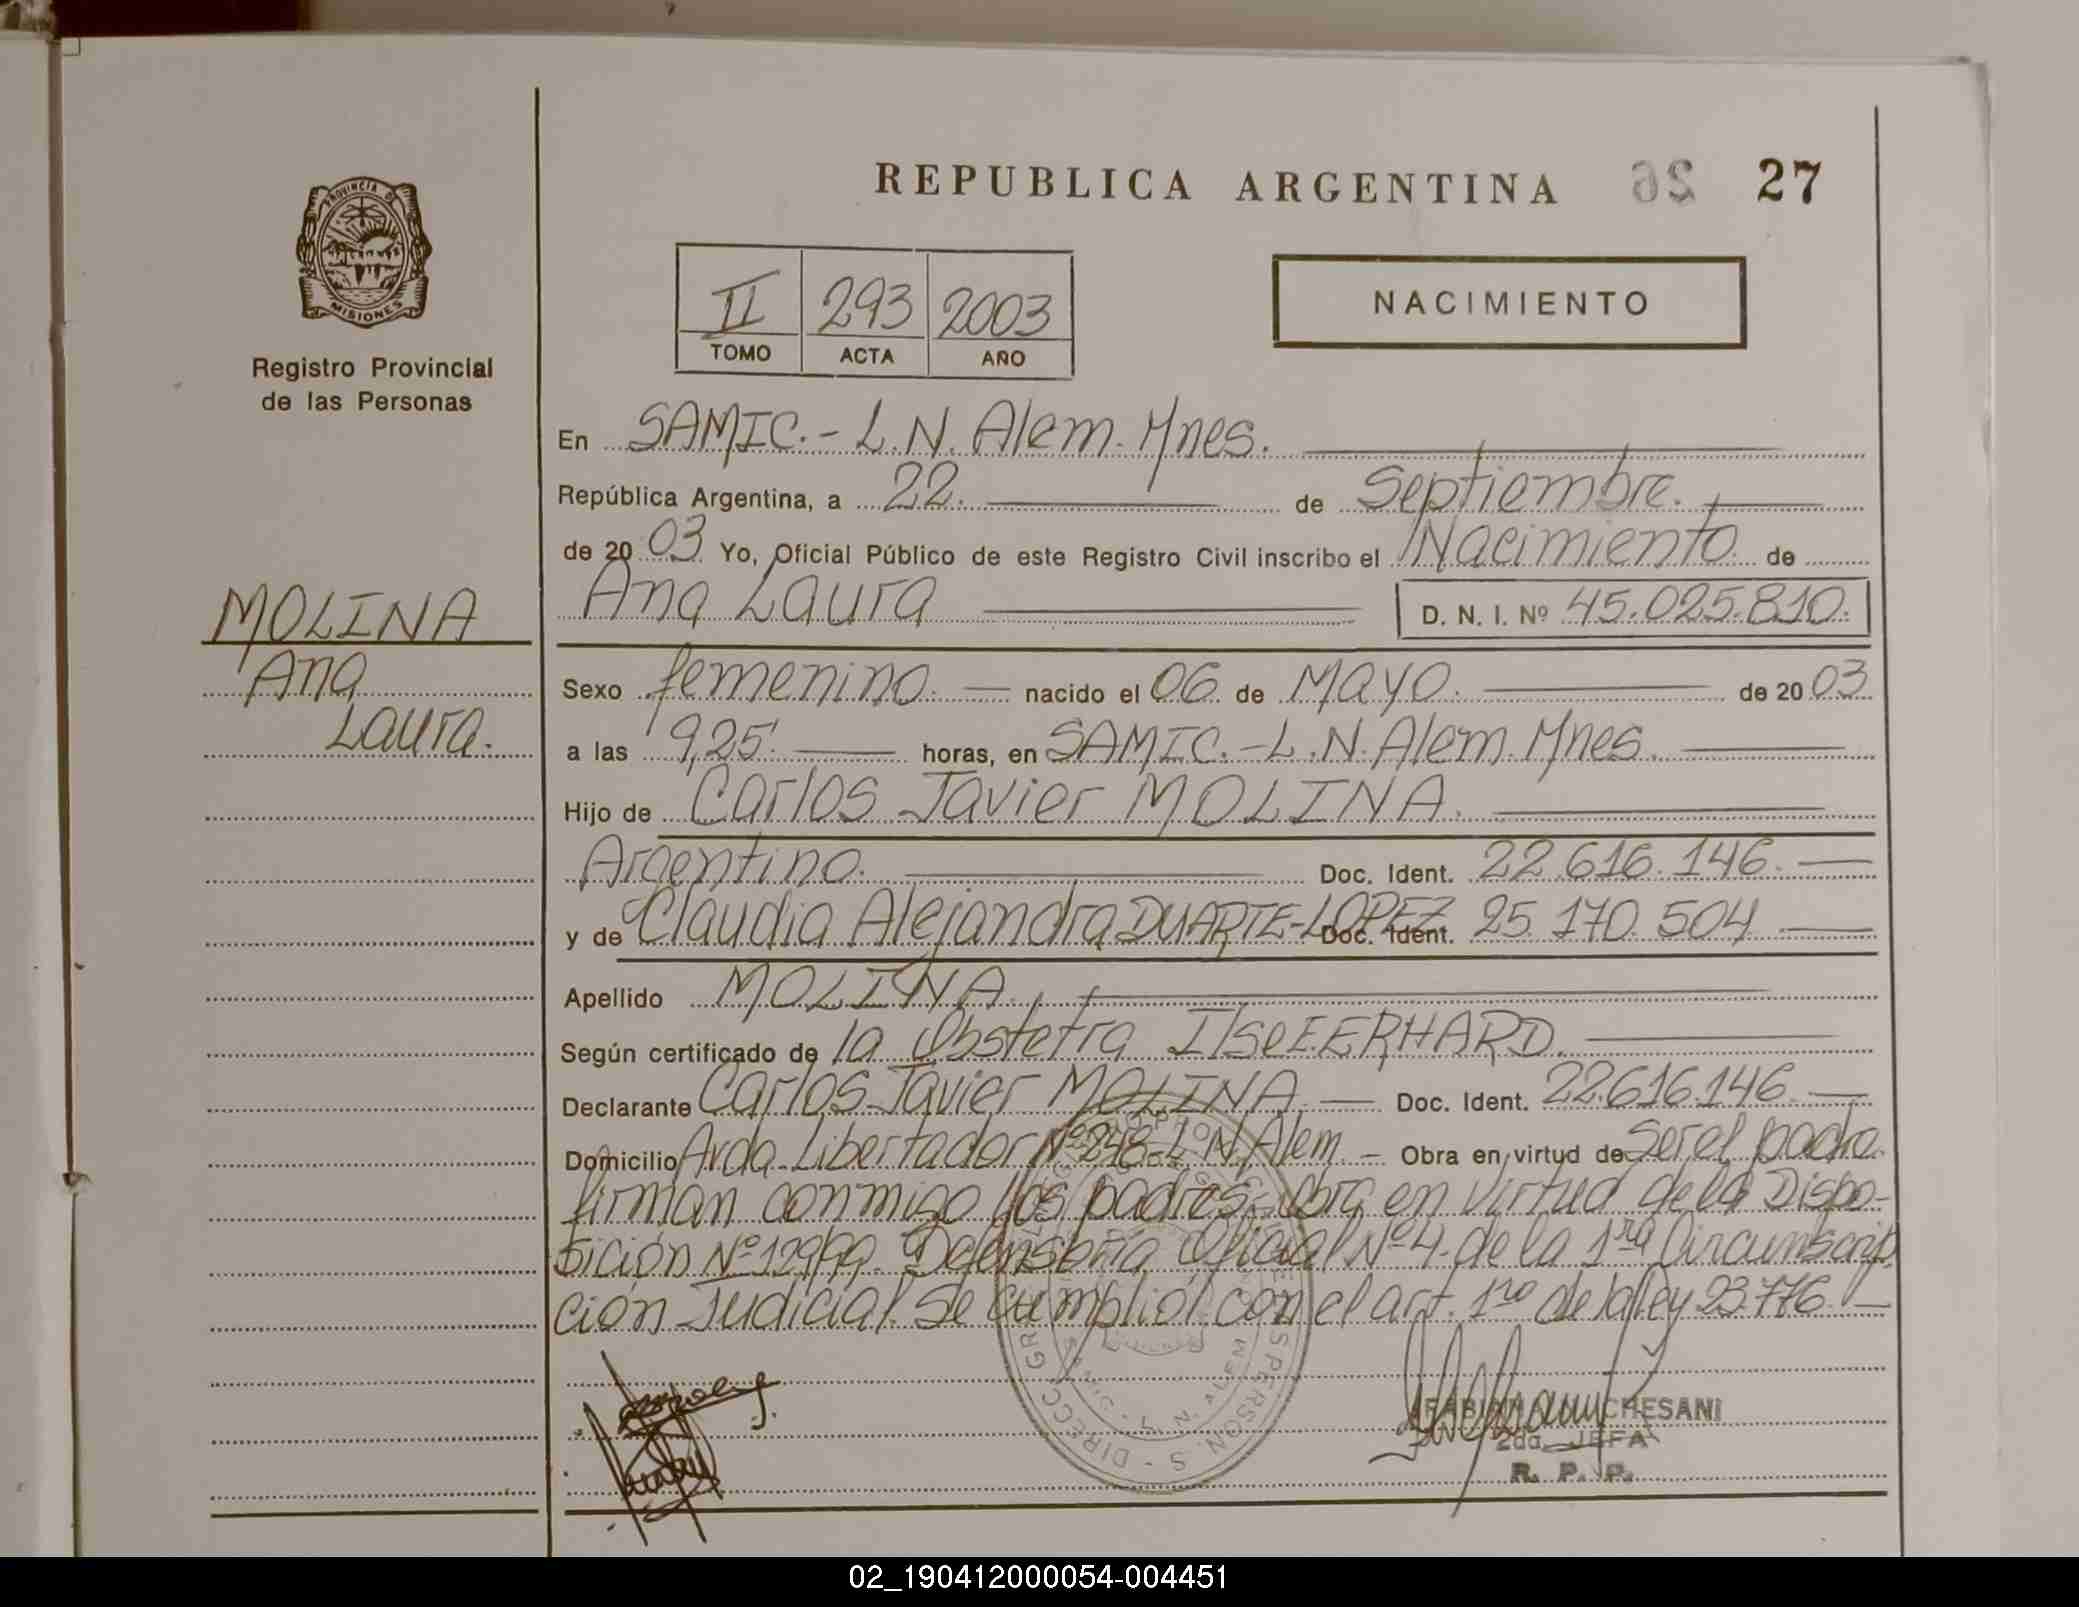 REPUBLICA ARGENTINA 26 27
PROVINCIA DE
MISIONES
Registro Provincial
de las Personas
II 293 2003
TOMO ACTA AÑO
NACIMIENTO
En SAMIC.- L.N. Alem. Mnes.
República Argentina, a 22. de Septiembre.
de 2003 Yo, Oficial Público de este Registro Civil inscribo el Nacimiento de
Ana Laura D. N. I. Nº 45.025.810.
MOLINA
Ana
Laura.
Sexo femenino. nacido el 06 de Mayo. de 2003
a las 9,25. horas, en SAMIC.-L.N. Alem. Mnes.
Hijo de Carlos Javier MOLINA.
Argentino. Doc. Ident. 22.616.146.
y de Claudia Alejandra DUARTE-LOPEZ Doc. Ident. 25.170.504
Apellido MOLINA.
Según certificado de la Obstetra Ilse EERHARD.
Declarante Carlos Javier MOLINA. Doc. Ident. 22.616.146
Domicilio Avda. Libertador Nº 248-L.N. Alem. - Obra en virtud de Ser el padre.
firman conmigo los padres, obra en virtud de la Dispo-
sición Nº 129/99. Defensoría Oficial Nº 4. de la 1ra Circunscrip-
ción Judicial. Se cumplió con el art. 1ro de la ley 23.776.-
CHESANI
2da. JEFA
R. P. P.
02_190412000054-004451